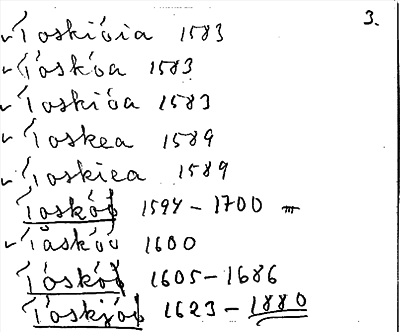 3.
✓ Toskióia 1583
✓ Tóskóa 1583
✓ Toskióa 1583
✓ Toskea 1589
✓ Toskiea 1589
Toskój 1594 – 1700
✓ Tåskóv 1600
Tóskój 1605 – 1686
Tóskjój 1623 – 1880